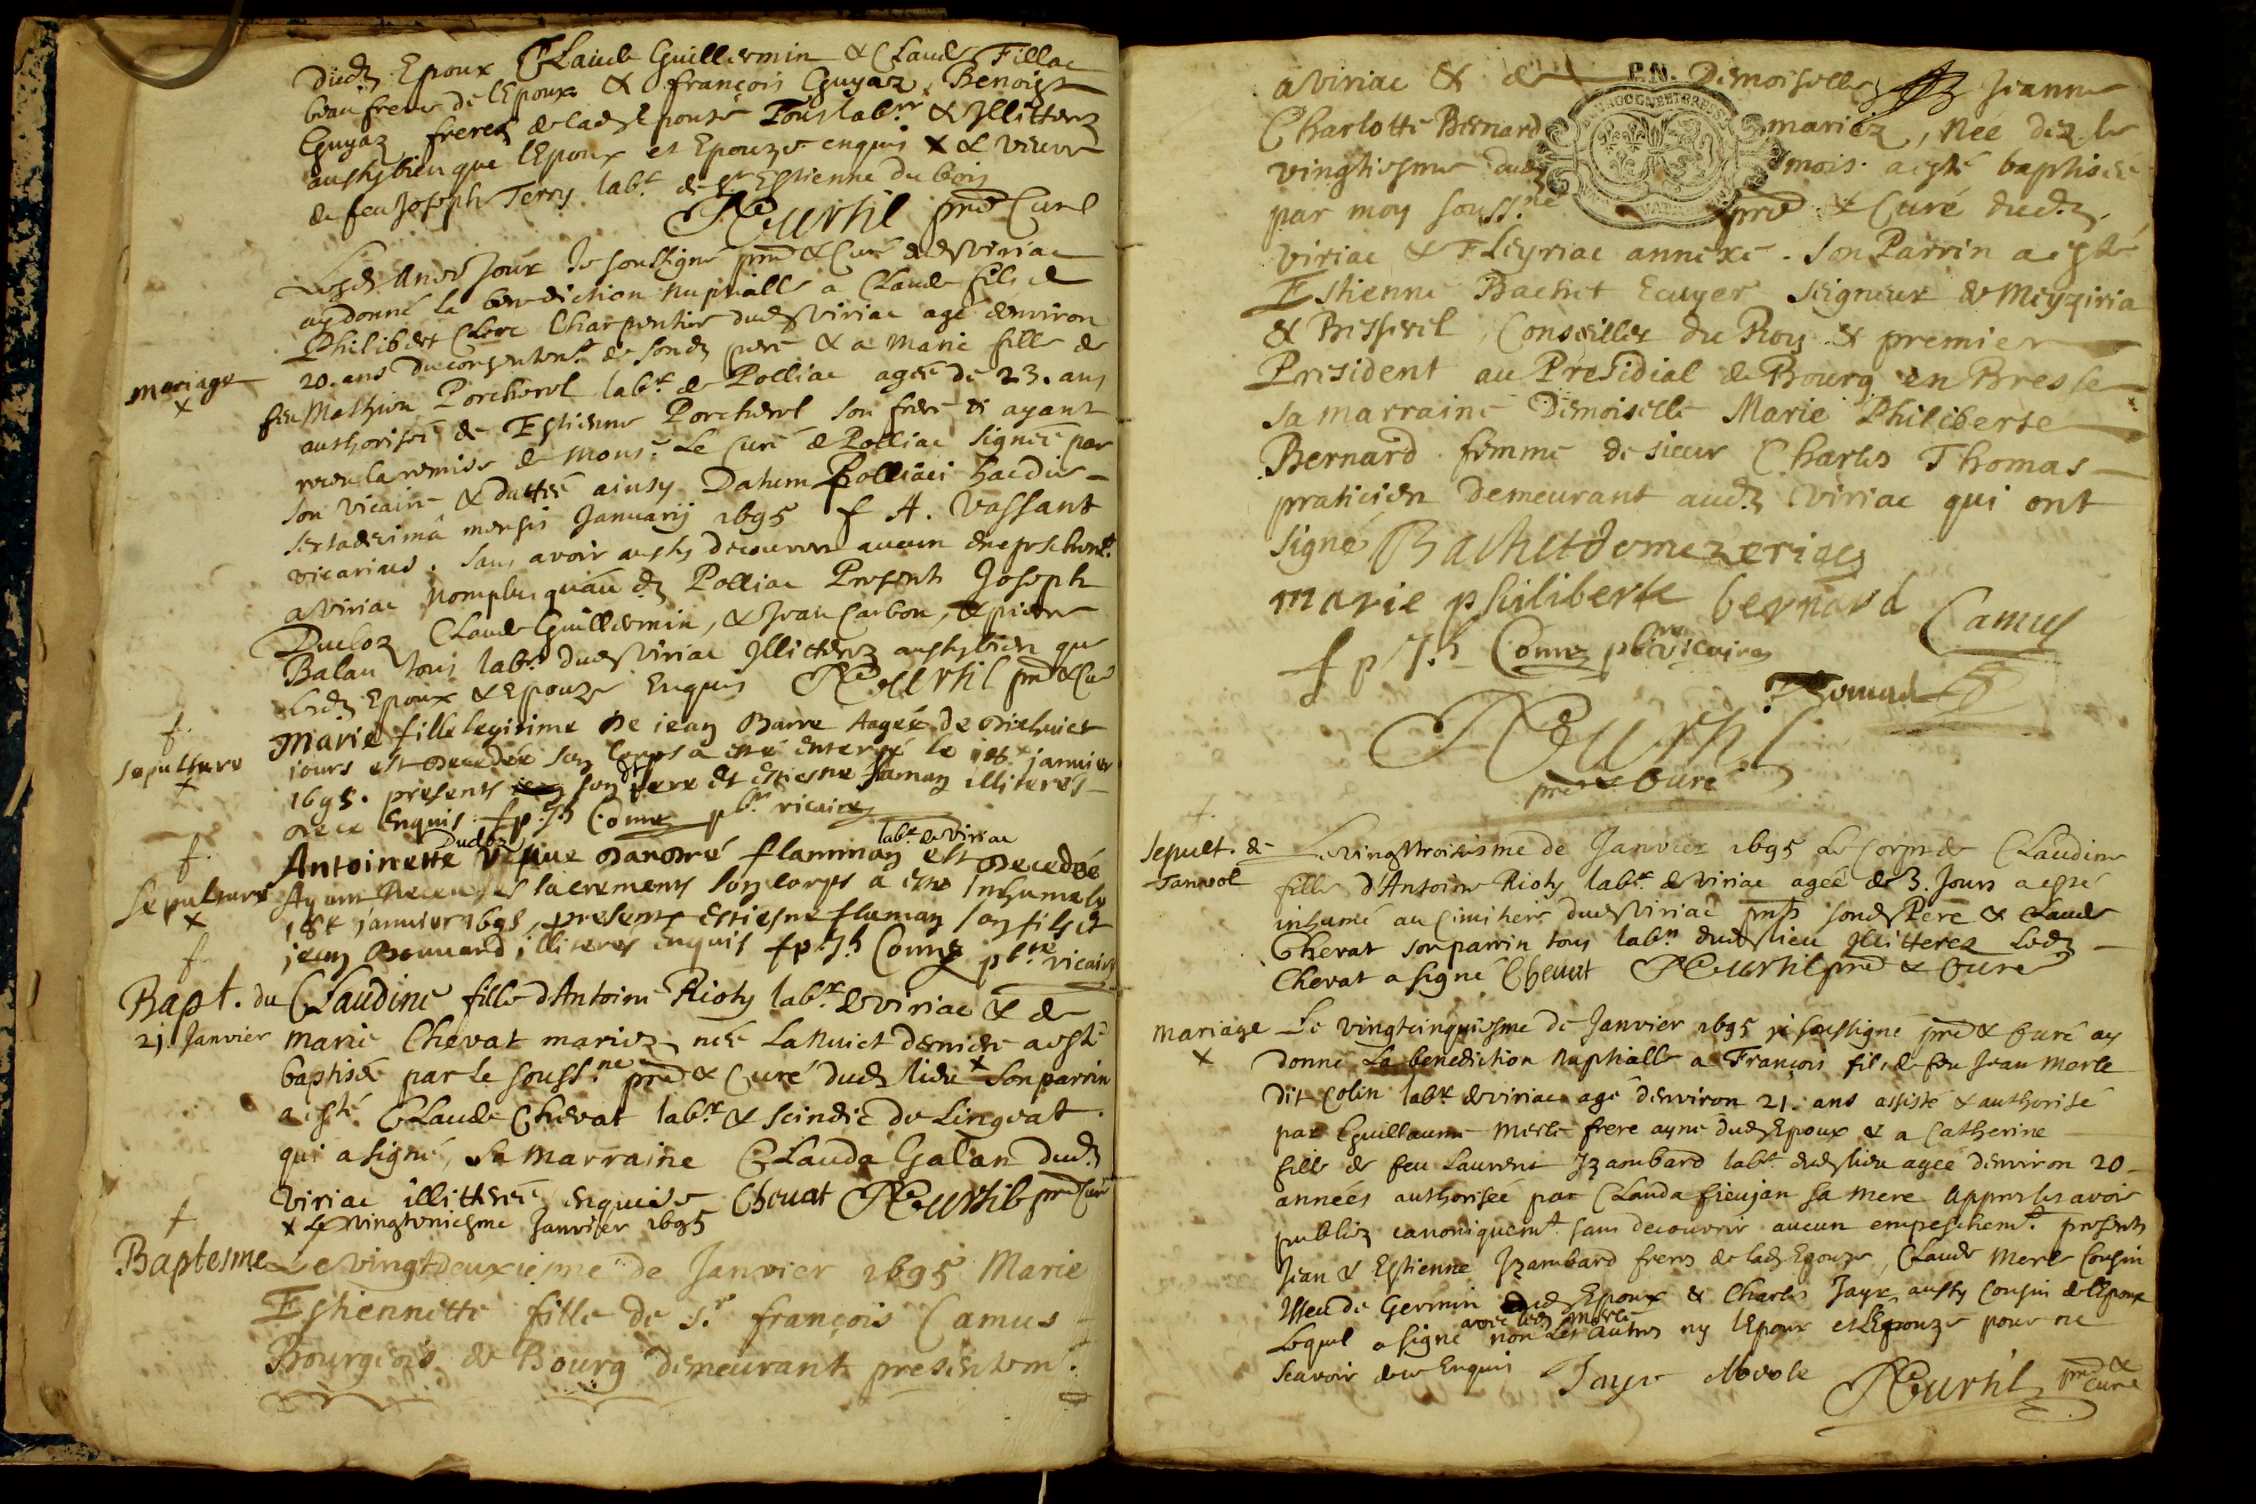 dud. Epoux Claude Guillermin & Claude Fillac
beau frere de lEpoux & françois Guyaz, Benoist
Guyaz freres de lad. Epouse Tous lab.rs & Jllitterez
ausybien que lEpoux et Epouze enquis X & vieuve
de feu Joseph Terry lab.r de st Estienne du bois
pre Curé
Lesd. an & Jour Je soussigné pre & Curé dud. viriac
ay donné la benediction nuptialle a Claude fils de
Philibert Clerc Charpentier dud. Viriac agé denviron
20. ans du consentem.t de sond. pere & a Marie fille de
mariage
X
feu Mathieu Porcherel lab.r de Polliac agée de 23. ans
authorisée de Estienne Porcherel son frere et ayant
receu la remise de Mons.r Le Curé de Polliac signée par
son vicaire & dattée ainsy Datum Polliaci hac die
sextadecima mensis Januarij 1695 f A. Vassant
vicarius. sans avoir aussy decouvert aucun empeschem.t
a Viriac nomplus quau d. Polliac Presents Joseph
Ducloz Claude Guillermin, & Jean Carbon, & pierre
Balan tous lab.rs dud. Viriac Jllitterez aussybien que
lesd. Epoux & Epouze Enquis pre & Curé
f.
sepulture
X
Marie fille legitime de jean Barre aagée de dixhuict
jours est decedée son corps a esté enterré le 18e janvier
1695. presents son dt pere et estiesne flaman illiterés
de ce enquis. f p. Jh Comz pbre vicaire
f.
sepulture
X
Antoinette Ducloz vefve dandré flamman labr de Viriac est decedée
ayant receu les sacrements son corps a esté inhumé le
18e janvier 1695, presents estiesne flaman son fils et
jean Bonnard illiteres enquis f p. Jh Comz pbre vicaire
f
Bapt. du
21. Janvier
Claudine fille dAntoine Rioty lab.r de viriac & de
Marie Chevat mariez née La Nuict derniere a esté
baptisée par le souss.né pre & Curé dud. lieu X Son parrin
a esté Claude Chevat lab.r & scindic de Lingeat
qui a signé, Sa Marraine Clauda Galan dud.
Viriac illitterée enquise Chevat pre Curé
X Le vingtuniesme Janvier 1695
f
Baptesme
Le vingtdeuxieme de Janvier 1695 Marie
Estiennette fille de s.r françois Camus
Bourgeois de Bourg demeurant presentem.t
a Viriac & de P.N. Demoiselle Jeanne
Charlotte Bernard mariez, Née dez le
vingtiesme dud. mois. a esté baptisée
par moy souss.né pre & Curé dud.
Viriac & Fleyriac annexe. Son Parrin a esté
Estienne Bachet Ecuyer Seigneur de Meyziria
& Bisserel, Conseiller du Roy & premier
President au Presidial de Bourg en Bresse
Sa marraine Demoiselle Marie Philiberte
Bernard femme de sieur Charles Thomas
praticien Demeurant aud. Viriac qui ont
signé Bachet de mezeriac
marie philiberte bernard
Camus
f p Jh Comz pbre vicaire
Thomas
pre & Curé
f.
Sepult. de
Le vingttroisiesme de Janvier 1695 Le Corps de Claudine
fille d'Antoine Rioty lab.r de Viriac agée de 3. Jours a esté
inhumé au Cimitiere dud. Viriac pnts sond. Pere & Claude
Chevat son parrin tous lab.rs dud. lieu Jllitterez Led.
Chevat a signé Chevat pre & Curé
mariage
X
Le vingtcinquiesme de Janvier 1695 je soussigné pre & Curé ay
donné La benediction Nuptialle a François fils de feu Jean Merle
dit Colin lab.r de viriac agé denviron 21. ans assisté & authorisé
par Guillaume Merle frere ayné dud. Epoux & a Catherine
fille de feu Laurent Jzambard lab.r dud. lieu agée denviron 20
années authorisée par Clauda fieujan sa mere Appres les avoir
publiez canoniquem.t sans decouvrir aucun empeschem.t presents
Jean & Estienne Jzambard freres de lad. Epouze, Claude Merle Cousin
Jssu de Germin dud. Epoux & Charles Jayr aussy Cousin de lEpoux
Lequel a signé avec led. Merle non Les autres ny lEpoux et lEpouze pour ne
scavoir de ce Enquis Jayr Merle pre & Curé